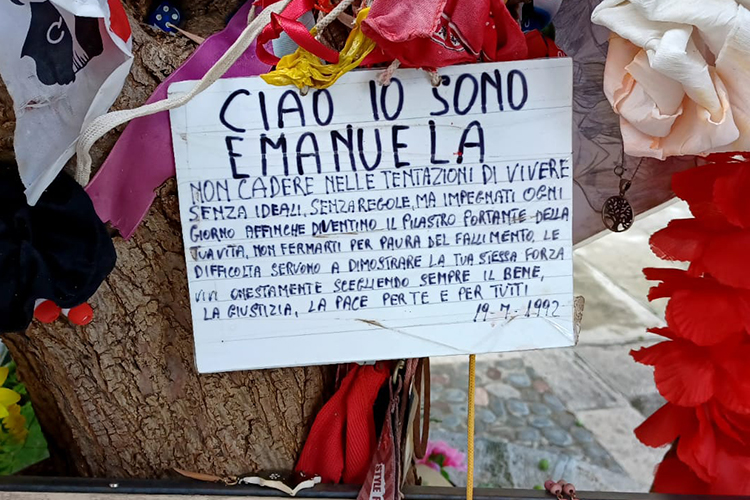 CIAO IO SONO
EMANUELA
NON CADERE NELLE TENTAZIONI DI VIVERE
SENZA IDEALI, SENZA REGOLE, MA IMPEGNATI OGNI
GIORNO AFFINCHE DIVENTINO IL PILASTRO PORTANTE DELLA
TUA VITA, NON FERMARTI PER PAURA DEL FALLIMENTO, LE
DIFFICOLTA SERVONO A DIMOSTRARE LA TUA STESSA FORZA
VIVI ONESTAMENTE SCEGLIENDO SEMPRE IL BENE,
LA GIUSTIZIA, LA PACE PER TE E PER TUTTI
19-7-1992